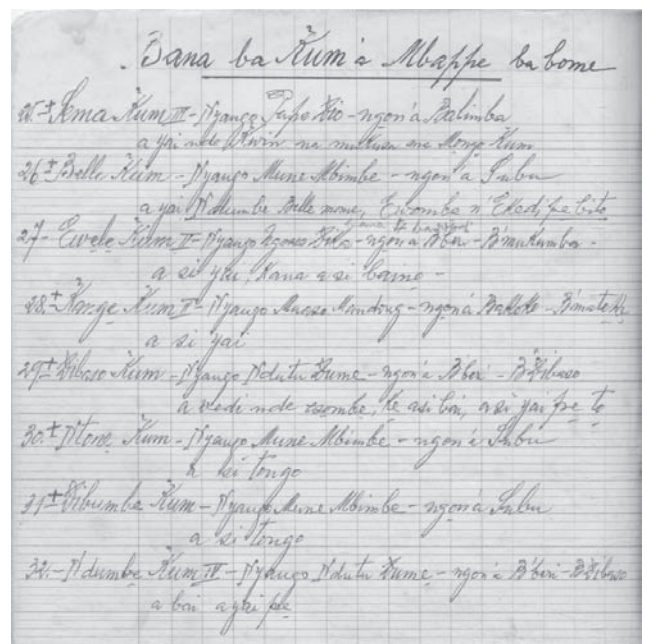 Bana ba Kum'a Mbappe ba bome
25.+ Sema Kum III - Nyango Jape Bio - ngon'a Balimba
a yai nde Ekwin na mukusa ma Mongo Kum
26+ Belle Kum - Nyango Mune Mbimbe - ngon'a Subu
a yai Ndumbe Belle mome, Ewombe n'Ekedi, pe bito
27- Ewele Kum II - Nyango Ngoso Bito - ngon'a B'beri - B'mukumba -
a si yai, Kana a si baino -
28.+ Kange Kum II - Nyango Muaso Mandong - ngon'a Bakoko - B'mateki
a si yai
29+ Dibaso Kum - Nyango Ndutu Dume - ngon'a B'beri - B'Dibaso
a wedi nde esombe, ke a si bai, a si yai pe to
30.+ Ntone Kum - Nyango Mune Mbimbe - ngon'a Subu
a si tongo
31+ Dibumba Kum - Nyango Mune Mbimbe - ngon'a Subu
a si tongo
32.- Ndumbe Kum IV - Nyango Ndutu Dume - ngon'a B'beri - B'Dibaso
a bai a yai pe